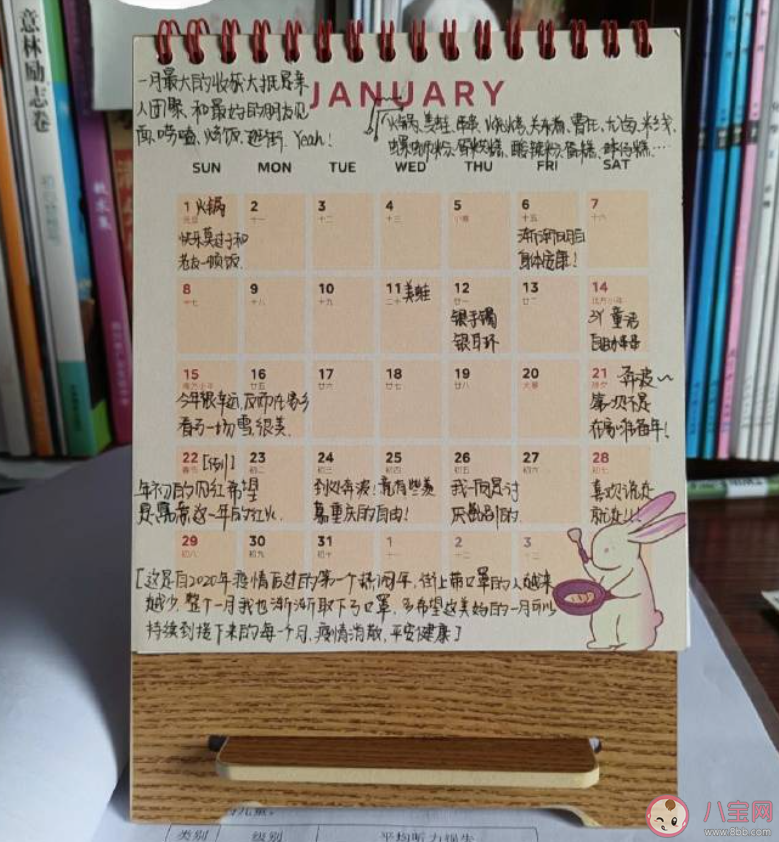 意林励志卷
一月最大的收获大抵是亲
人团聚,和最好的朋友见
面,唠嗑,烧饭,逛街. Yeah!
JANUARY
火锅、美蛙、串串、烧烤、关东煮、
米线、
螺蛳粉、蛋烘糕、酸辣粉、蛋糕、
SUN MON TUE WED THU FRI SAT
1 火锅 2 3 4 5 6 7
元旦 十一 十二 十三 小寒 十五 十六
快乐莫过于和
老友一顿饭.
渐渐阳后
身体安康!
8 9 10 11 美蛙 12 13 14
十七 十八 十九 二十 廿一 廿二 北方小年
银手镯
银耳环
童话
自助串串
15 16 17 18 19 20 21 奔波~
南方小年 廿五 廿六 廿七 廿八 大寒 除夕
今年很幸运,反而在家乡
看了一场雪,很美.
第一次不是
在家准备年!
22 23 24 25 26 27 28
春节 初二 初三 初四 初五 初六 初七
年初的
是寓意这一年的红火.
到处奔波!竟有些羡
慕重庆的自由!
我一向是讨
厌離别的.
喜欢说走
就走!!
29 30 31 1 2 3
初八 初九 初十 十一 十二 十三
[这是自2020年疫情后过的第一个热闹年,街上带口罩的人越来
越少,整个一月我也渐渐取下了口罩,多希望这美好的一月可以
持续到接下来的每个月,疫情消散,平安健康]
类别 级别 平均听力损失
八宝网
www.8bb.com